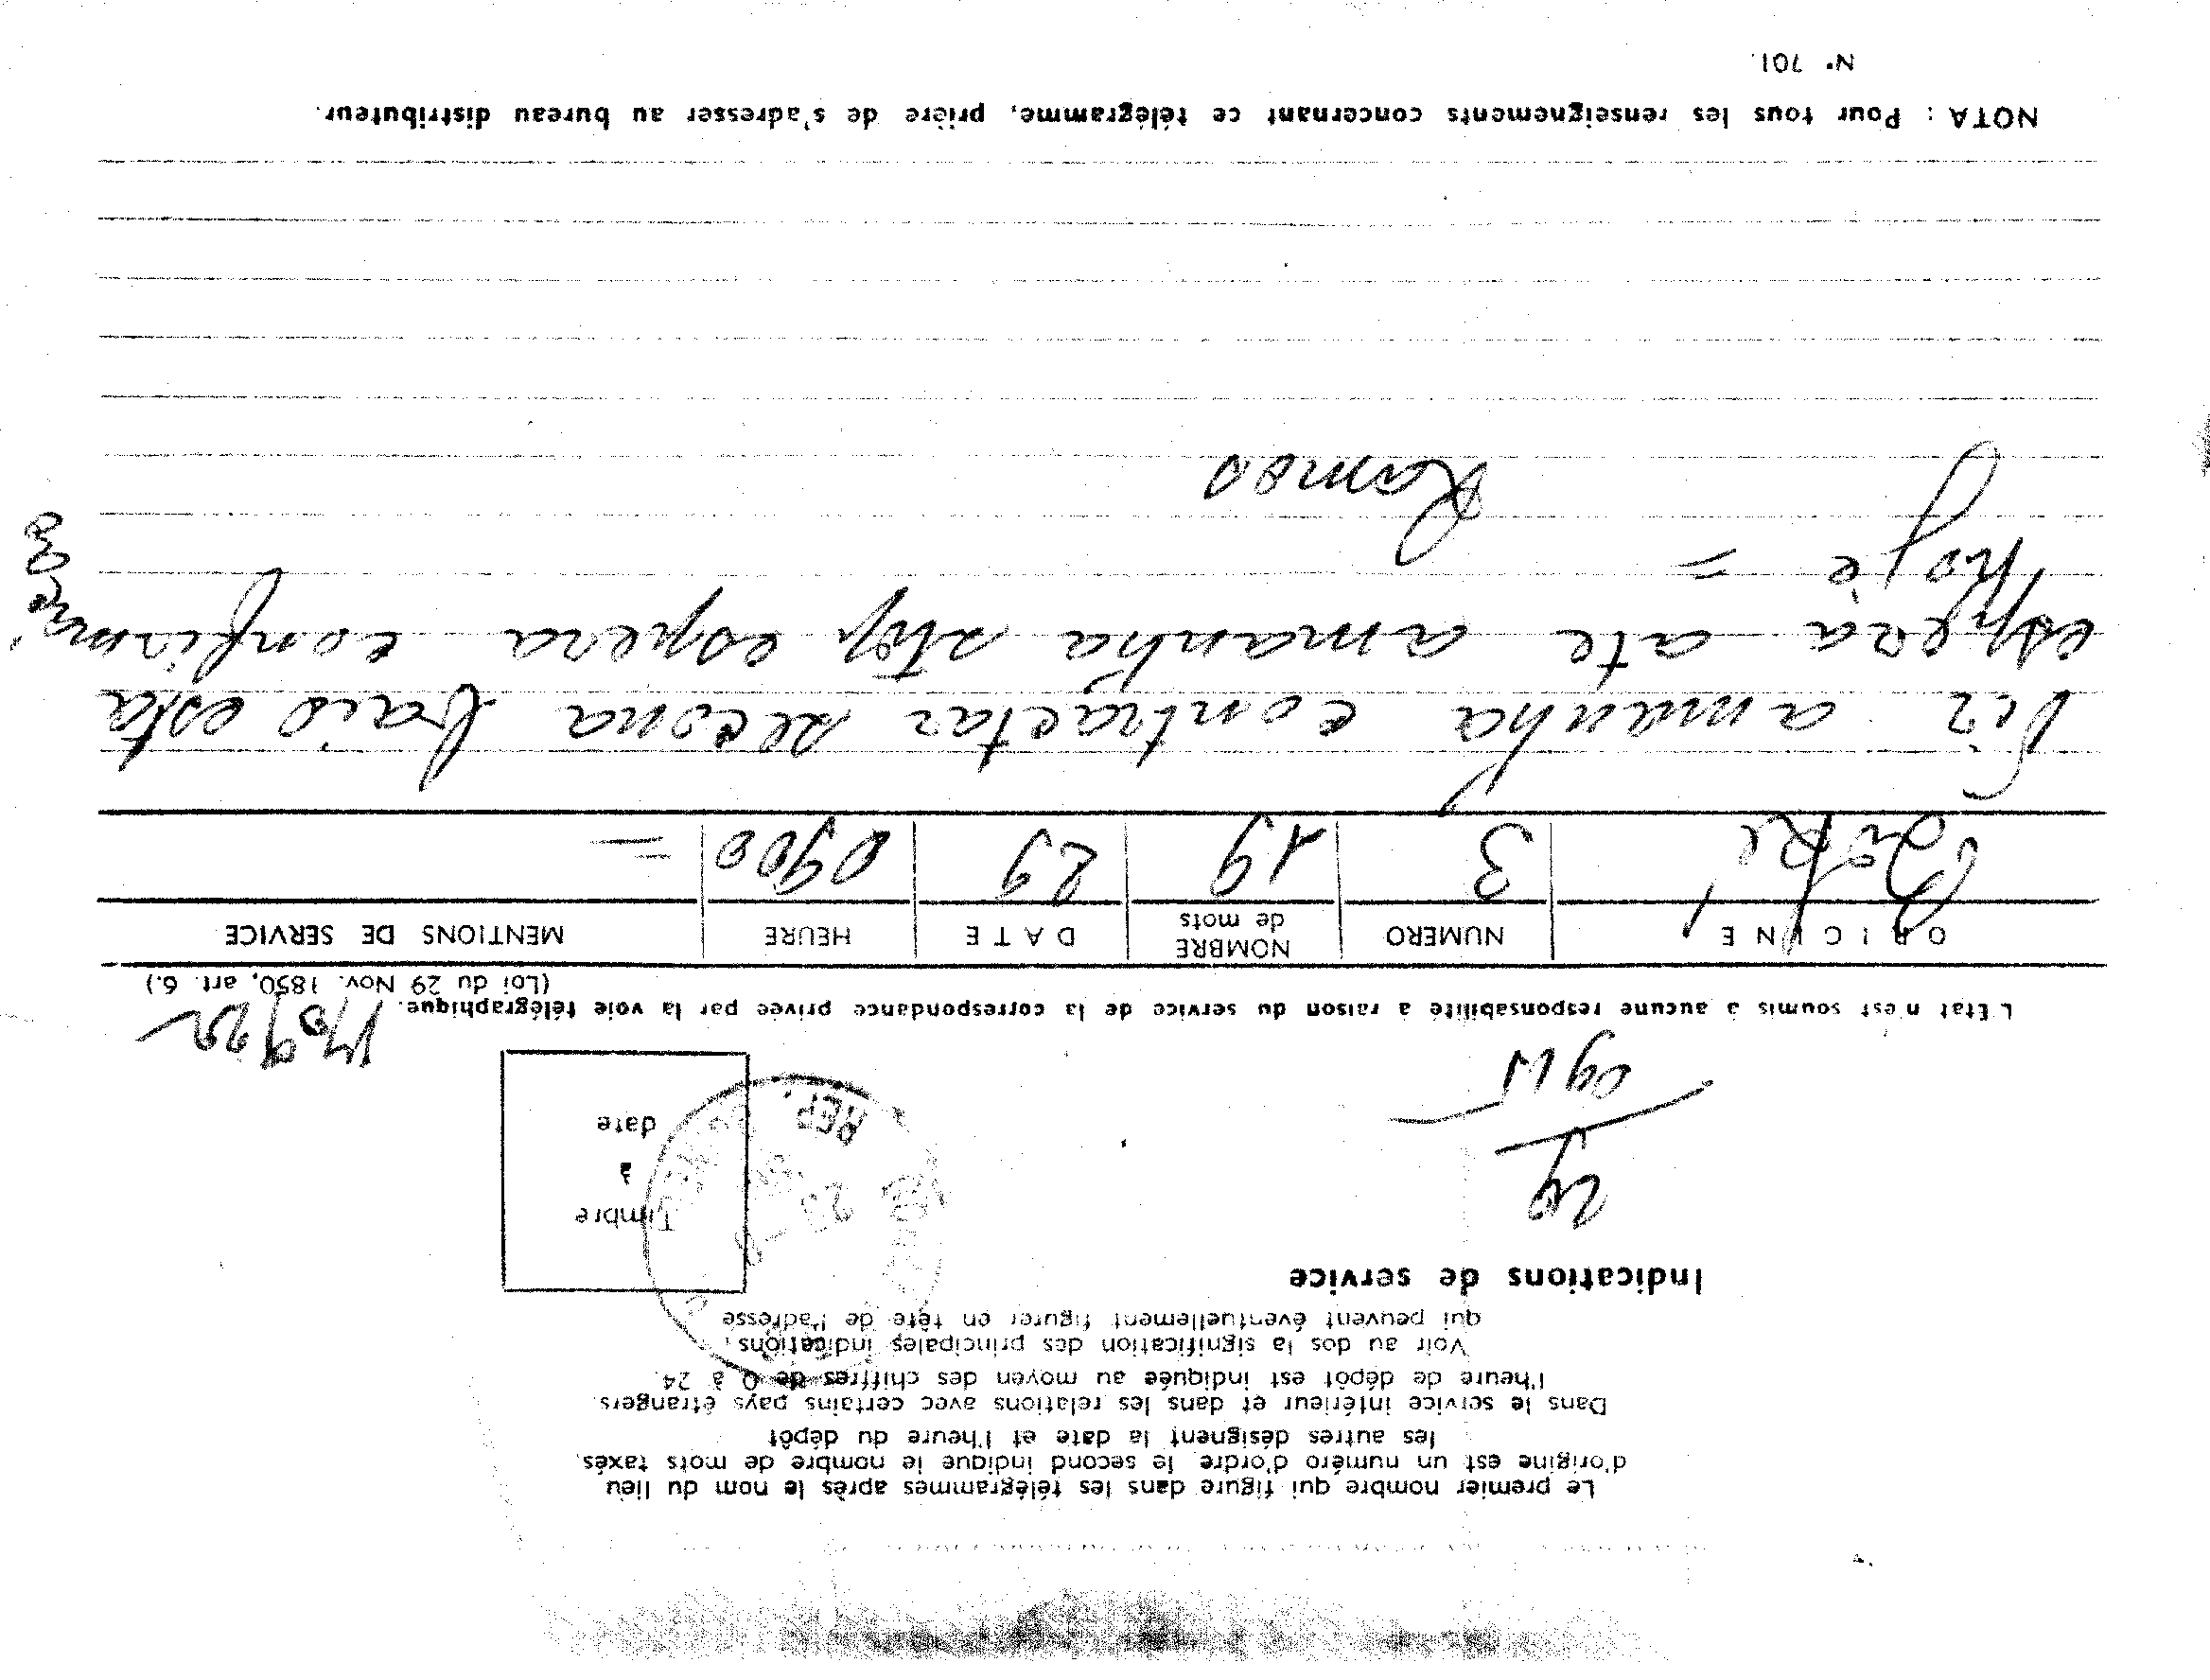 Le premier nombre qui figure dans les télégrammes après le nom du lieu
d'origine est un numéro d'ordre, le second indique le nombre de mots taxés,
les autres désignent la date et l'heure du dépôt
Dans le service intérieur et dans les relations avec certains pays étrangers,
l'heure de dépôt est indiquée au moyen des chiffres de 0 à 24.
Voir au dos la signification des principales indications
qui peuvent éventuellement figurer en tête de l'adresse
Indications de service
Timbre
à
date
REP.
29
L'Etat n'est soumis à aucune responsabilité à raison du service de la correspondance privée par la voie télégraphique.
(Loi du 29 Nov. 1850, art. 6.)
ORIGINE NUMERO NOMBRE de mots DATE HEURE MENTIONS DE SERVICE
Boké 3 19 29 0900 =
amanha contractar esta
espera ate amanha stop espera
hoje =
Ramos
NOTA : Pour tous les renseignements concernant ce télégramme, prière de s'adresser au bureau distributeur.
N° 701.